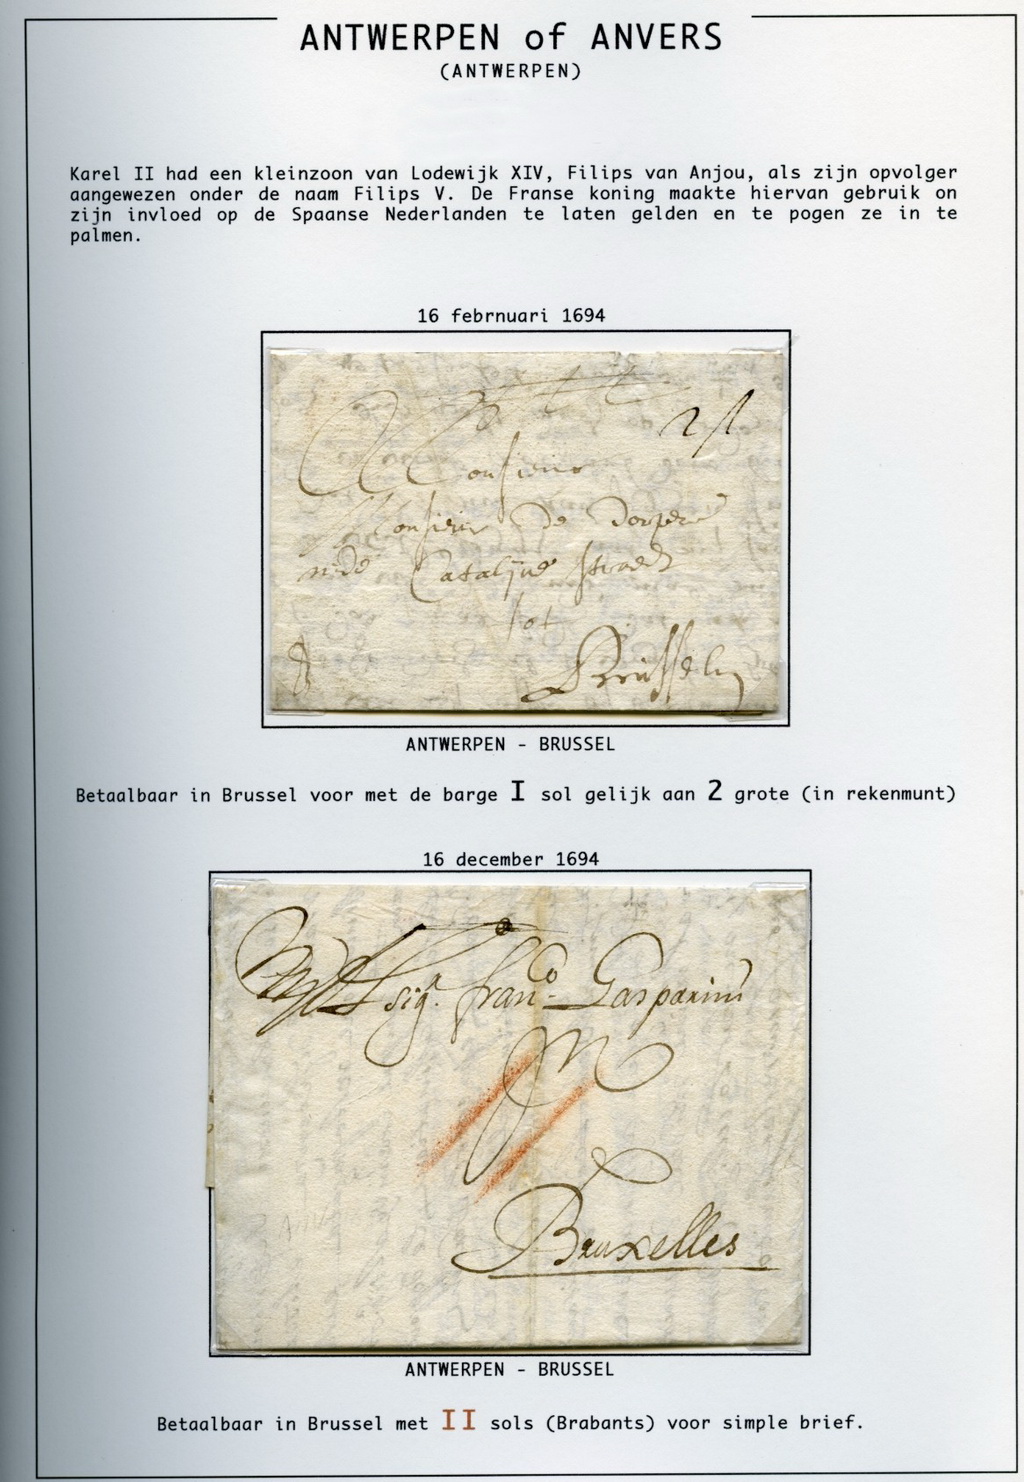 ANTWERPEN of ANVERS
(ANTWERPEN)
Karel II had een kleinzoon van Lodewijk XIV, Filips van Anjou, als zijn opvolger
aangewezen onder de naam Filips V. De Franse koning maakte hiervan gebruik on
zijn invloed op de Spaanse Nederlanden te laten gelden en te pogen ze in te
palmen.
16 febrnuari 1694
Monsieur
Monsieur De
Catalijne straedt
tot
Brussel
ANTWERPEN - BRUSSEL
Betaalbaar in Brussel voor met de barge I sol gelijk aan 2 grote (in rekenmunt)
16 december 1694
sigr. franco. Gasparini
Bruxelles
ANTWERPEN - BRUSSEL
Betaalbaar in Brussel met II sols (Brabants) voor simple brief.